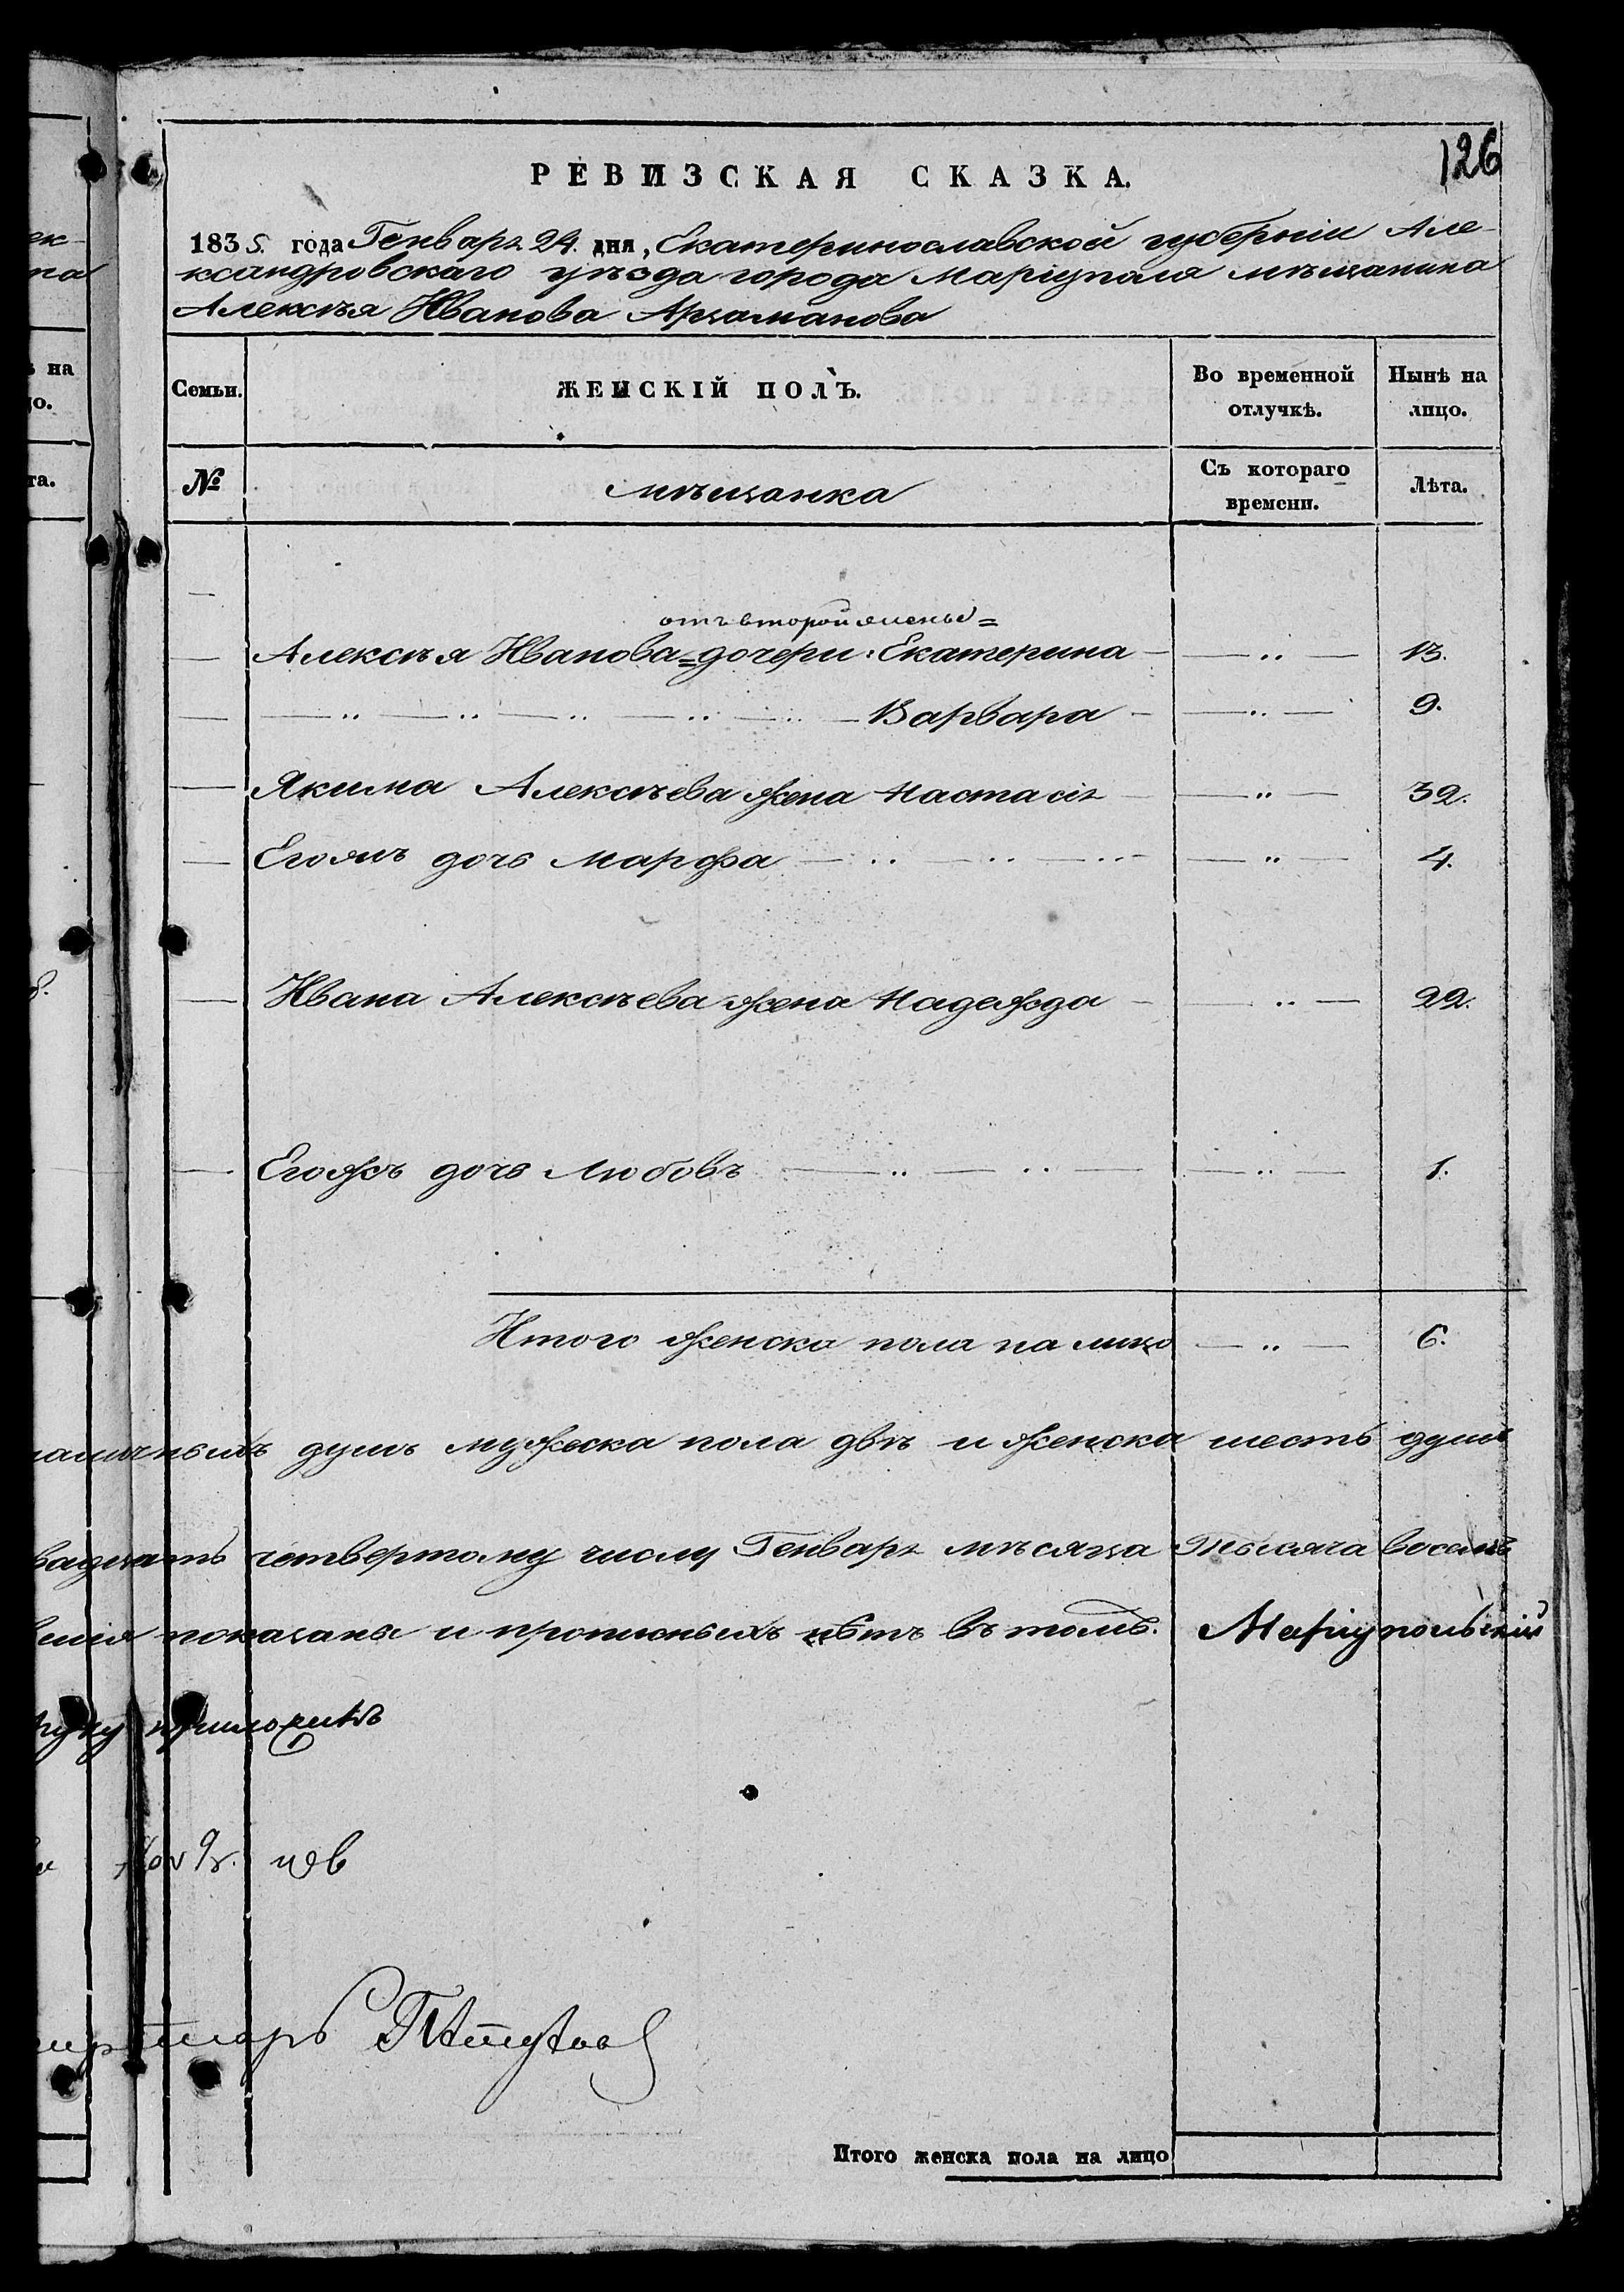 126
РЕВИЗСКАЯ СКАЗКА.
1835. года Генваря 24. дня, Екатеринославской губерніи Але-
ксандровскаго уѣзда города Маріуполя мѣщанина
Алексѣя Иванова Арзаманова
Семьи. ЖЕНСКІЙ ПОЛЪ. Во временной отлучкѣ. Нынѣ на лицо.
№ мѣщанка Съ котораго времени. Лѣта.
отъ второй жены =
Алексѣя Иванова = дочери: Екатерина — „ — 13.
— „ — „ — „ — „ — Варвара — „ — 9.
Якима Алексѣева жена Настасія — „ — 32.
Егожъ дочь Марфа — „ — 4.
Ивана Алексѣева жена Надежда — „ — 22.
Егожъ дочь Любовь — „ — 1.
Итого женска пола на лицо — „ — 6.
наличныхъ душъ мужеска пола двѣ и женска шесть душъ
вадцать четвертому числу Генваря мѣсяца тысяча восемь
показаны и прописныхъ нѣтъ въ томъ. Маріупольскій
руку приложилъ
Итого женска пола на лицо
ек-
на
ѣ на
цо.
та.
8.